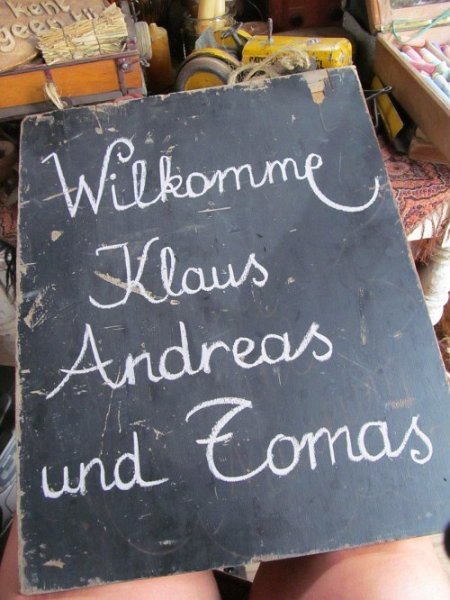 kent
geen
Wilkomme
Klaus
Andreas
und Tomas